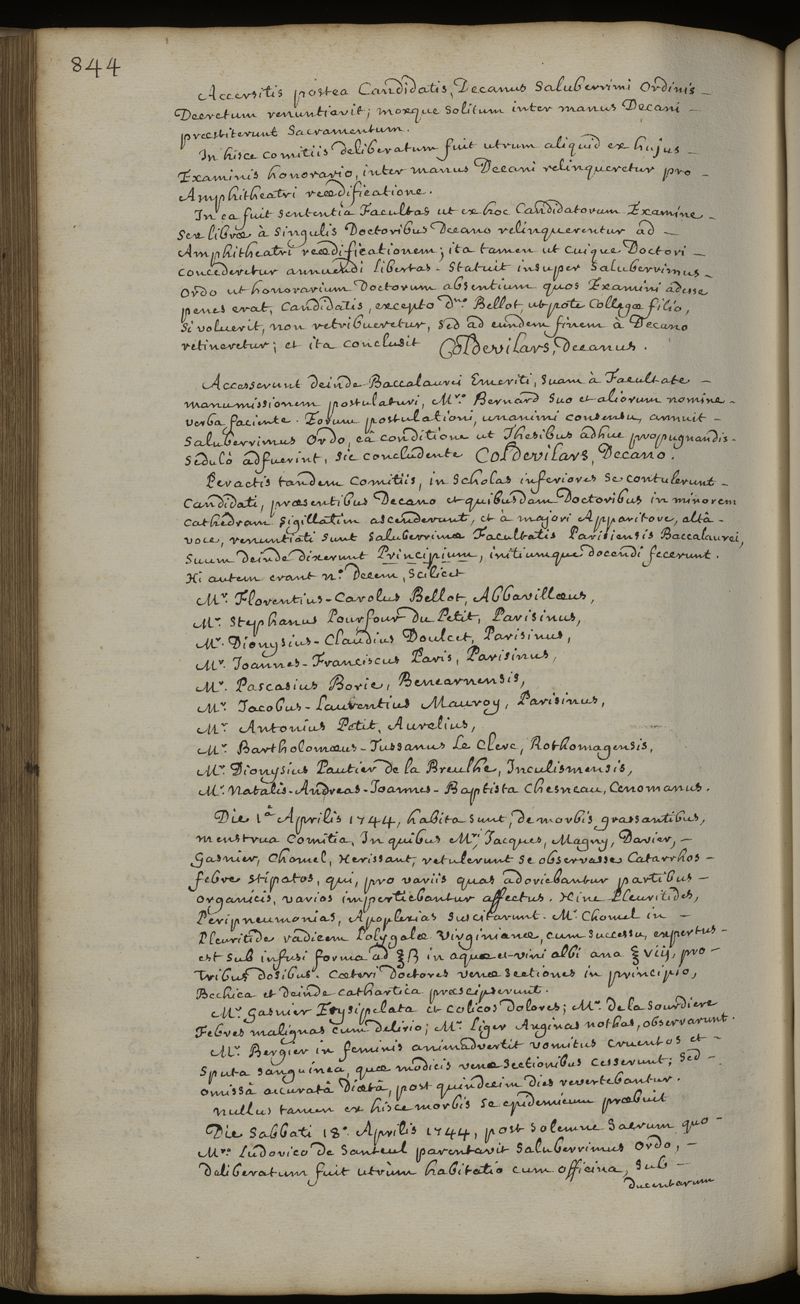 844
Accersitis postea Candidatis, Decanus Saluberrimi Ordinis -
Decretum renuntiavit; moxque solitum inter manus Decani -
præstiterunt Sacramentum.
In hisce comitiis deliberatum fuit utrum aliquid ex hujus -
Examinis honorario, inter manus Decani relinqueretur pro -
Amphitheatri reædificatione.
In ea fuit sententia Facultas ut ex hoc Candidatorum Examine -
Sex libræ à Singulis Doctoribus Decano relinquerentur ad -
Amphitheatri reædificationem; ita tamen ut cuique Doctori -
concederetur annuendi libertas - Statuit insuper Saluberrimus -
Ordo ut honorarium Doctorum absentium quos Examini adesse
penes erat, Candidatis, excepto D.no Bellot, utpote Collegæ filio,
si voluerit, non retribueretur, sed ad eundem finem à Decano
retineretur; et ita conclusit Col De vilars, Decanus.
Accesserunt deinde Baccalaurei Emeriti, suam à Facultate -
manumissionem postulaturi, M.ro Bernard suo et aliorum nomine -
verba faciente. Eorum postulationi, unanimi consensu, annuit -
Saluberrimus Ordo, eâ conditione ut Thesibus adhuc propugnandis -
Sedulò adfuerint, sic concludente Col De vilars, Decano.
Peractis tandem Comitiis, in Scholas inferiores se contulerunt -
Candidati, præsentibus Decano et quibusdam Doctoribus in minorem
cathedram sigillatim ascenderunt, et à majori Apparitore, altâ -
voce, renuntiati sunt Saluberrimæ Facultatis Parisiensis Baccalaurei,
Suum deinde dixerunt Principium, initiumque docendi fecerunt.
Hi autem erant n.o Decem, Scilicet
M.r Florentius-Carolus Bellot, Abbavillæus,
M.r Stephanus Pourfour du Petit, Parisinus,
M.r Dionysius-Claudius Doulcet, Parisinus,
M.r Joannes-Franciscus Paris, Parisinus,
M.r Pascasius Borie, Benearnensis,
M.r Jacobus-Laurentius Mauroy, Parisinus,
M.r Antonius Petit, Aurelius,
M.r Bartholomæus-Tussanus Le Clerc, Rothomagensis,
M.r Dionysius Pautier de la Breulhe, Inculismensis,
M.r Natalis-Andreas-Joannes-Baptista Chesneau, Cenomanus.
Die 1â Aprilis 1744, habita sunt, de morbis grassantibus,
menstrua Comitia, In quibus M.ri Jacques, Magny, Davier, -
Gasnier, Chomel, Herissant, retulerunt se observasse Catarrhos -
febre stipatos, qui, pro variis quas adoriebantur partibus -
organicis, varios impertiebantur affectus. Hinc Pleuritides,
Peripneumonias, Apoplexias suscitarunt. M.r Chomel in -
Pleuritide radicem Polygalæ Virginianæ, cum successu, expertus -
est sub infusi forma ad ʒß in aquæ et vini albi ana ℥ viij, pro -
tribus dosibus. Cæteri doctores venæ sectiones in principio,
Bechica et deinde cathartica præscipserunt.
M.r Gasnier Erysipelata et colicos dolores; M.r de la Sourdiere
Febres malignas cum delirio; M.r Liger Anginas nothas, observarunt.
M.r Bergier in feminis animadvertit vomitus cruentos et -
Sputa sanguinea, quæ modicis venæ sectionibus cesserunt; sed -
omissâ accuratâ Diætâ, post quindecim dies revertebantur.
Nullus tamen ex hisce morbis se epidemicum præbuit
Die Sabbati 18.a Aprilis 1744, post solemne Sacrum quo -
M.ro Ludovico de Santeul parentavit Saluberrimus Ordo, -
deliberatum fuit utrùm habitatio cum officina, sub -
ducentarum